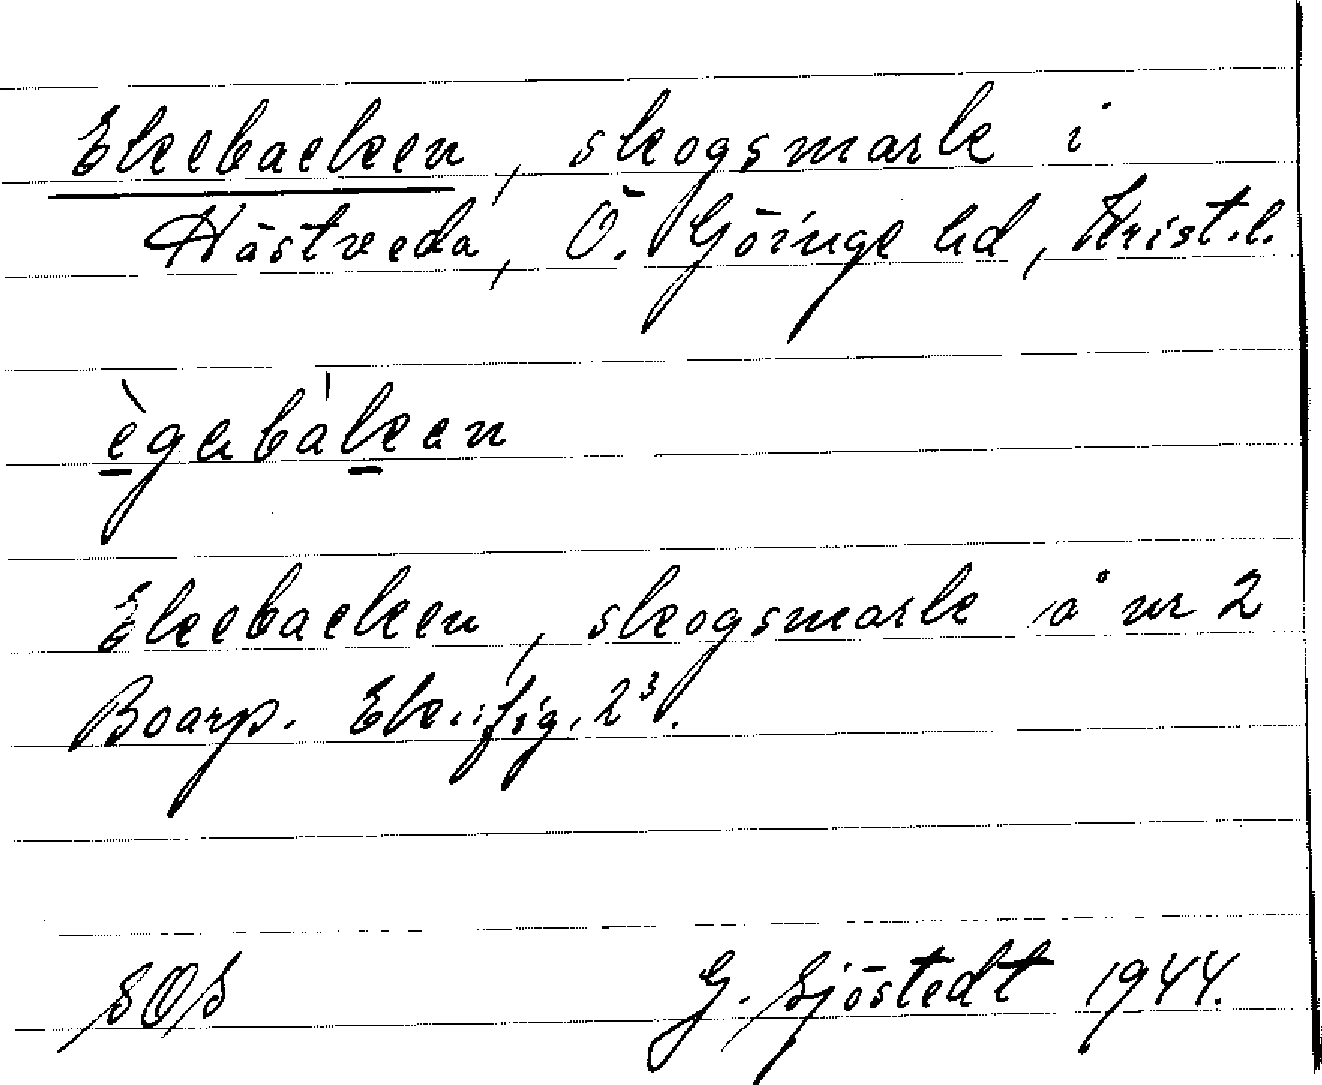 Ekebacken, skogsmark i
Hästveda, Ö. Göinge hd, Krist.l.
ègabàkan
Ekebacken, skogsmark å nr 2
Boarp. Ek. fig. 2³.
SOS G. Sjöstedt 1944.